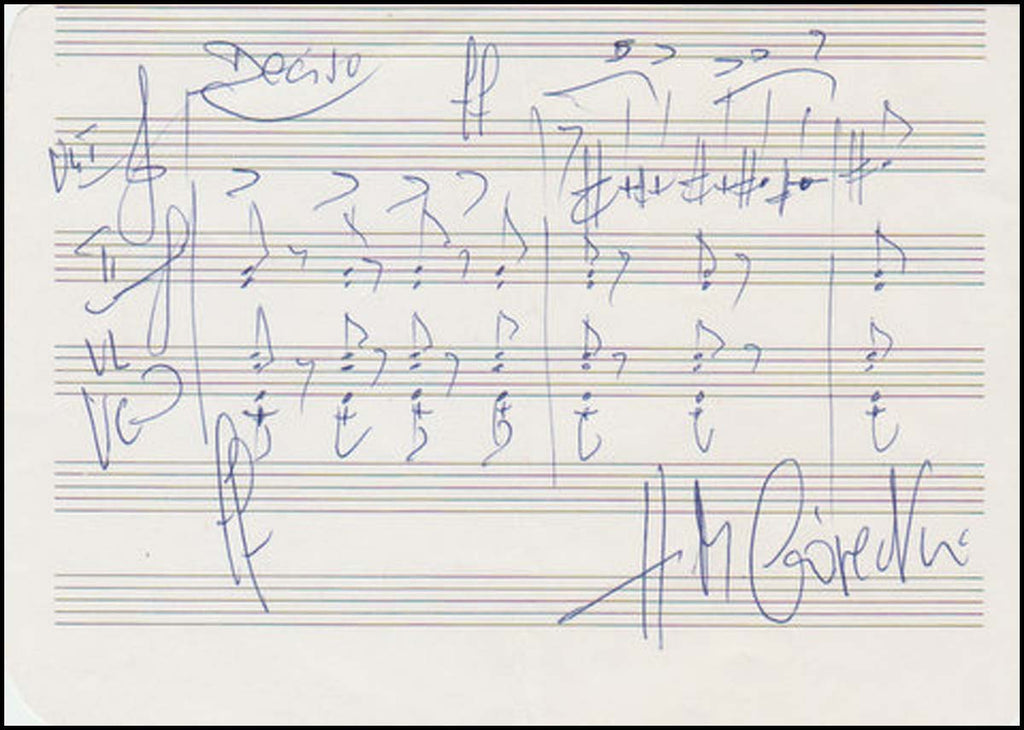 Deciso ff
Vl I
II
VL
VC
ff
HM Górecki